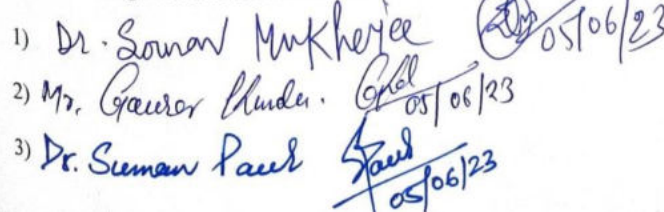 1) Dr. Souran Mukherjee 05/06/23
2) Mr. Gaurav Kundu. 05/06/23
3) Dr. Suman Paul SPaul 05/06/23